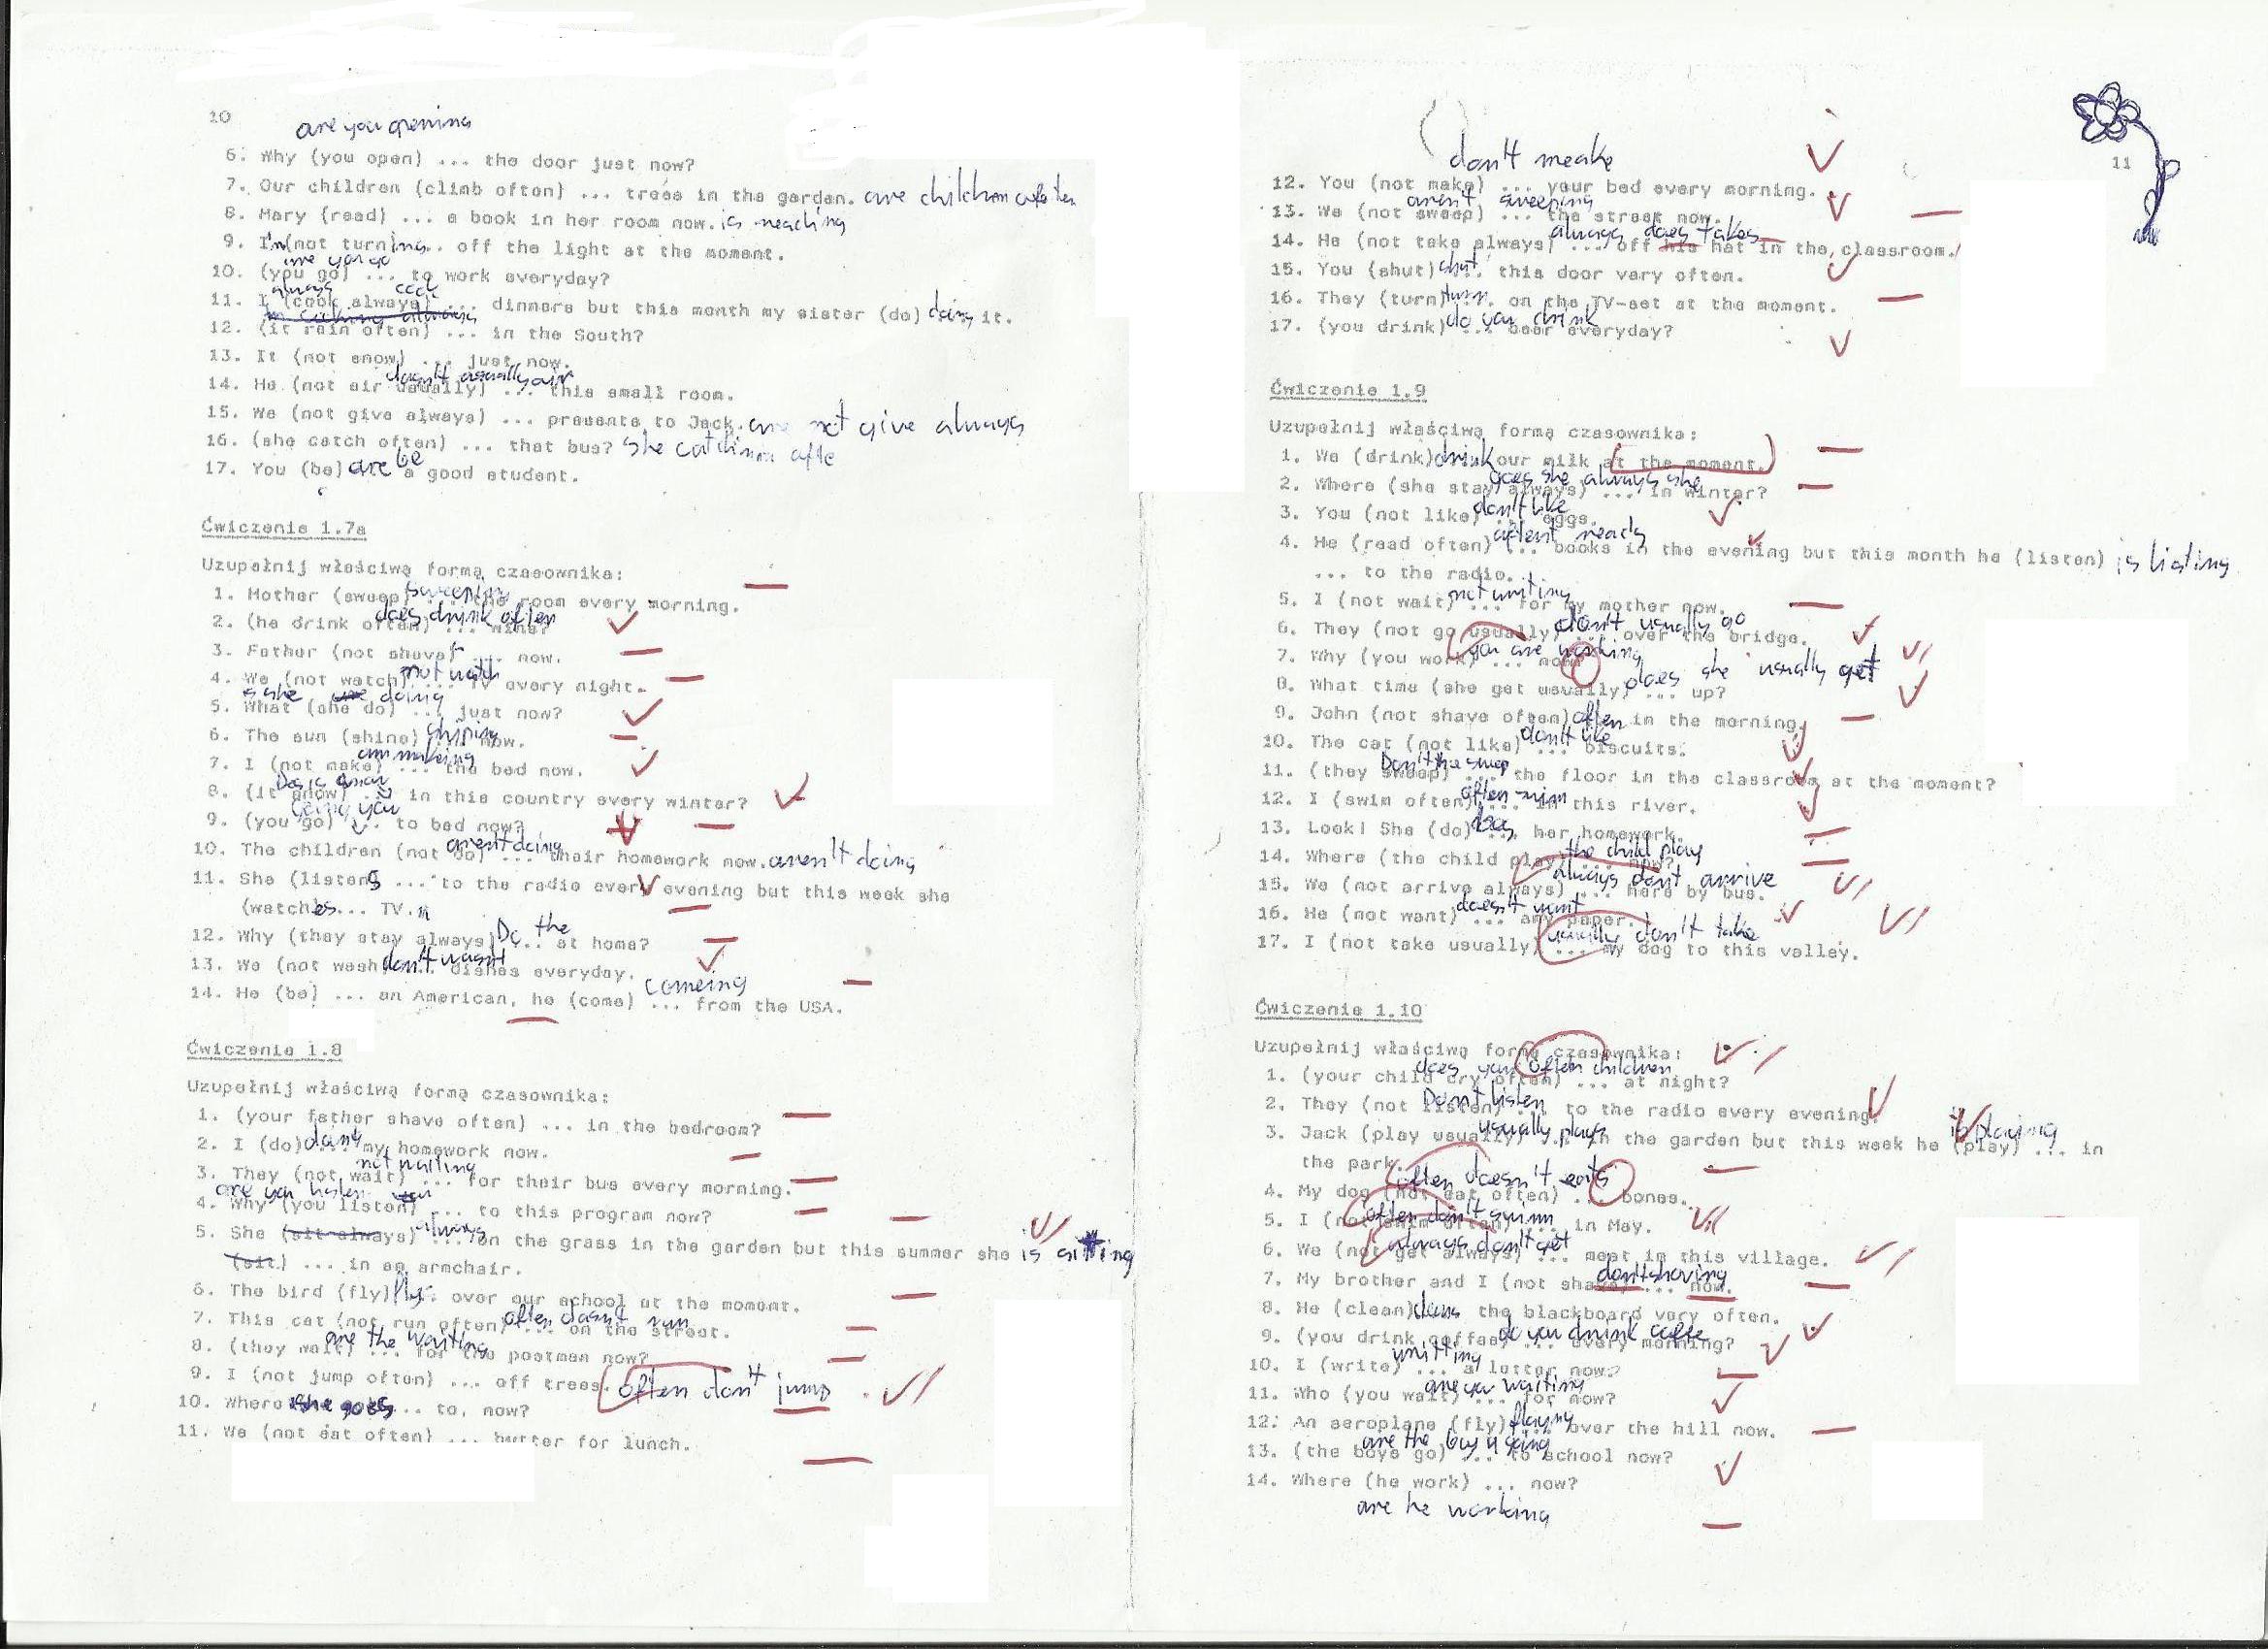 10
are you opening
6. Why (you open) ... the door just now?
7. Our children (climb often) ... trees in the garden. are children
8. Mary (read) ... a book in her room now. is
9. I'm (not turning.. off the light at the moment.
are you go
10. (you go) ... to work everyday?
always cook
11. I (cook always) ... dinners but this month my sister (do) doing it.
12. (it rain often) ... in the South?
13. It (not snow) ... just now.
doesn't usually air
14. He (not air usually) ... this small room.
15. We (not give always) ... presents to Jack. are not give always
16. (she catch often) ... that bus? she
17. You (be) are be a good student.
Ćwiczenie 1.7a
Uzupełnij właściwą formą czasownika:
sweeping
1. Mother (sweep) ... the room every morning.
does drink often
2. (he drink often) ... wine?
3. Father (not shave) ... now.
not watch
4. We (not watch) ... TV every night.
is she doing
5. What (she do) ... just now?
shining
6. The sun (shine) ... now.
am making
7. I (not make) ... the bed now.
8. (it snow) ... in this country every winter?
going you
9. (you go) ... to bed now?
aren't doing
10. The children (not do) ... their homework now. aren't doing
11. She (listens ... to the radio every evening but this week she
(watches... TV.
Do the
12. Why (they stay always) ... at home?
don't wasnt
13. We (not wash) ... dishes everyday.
comeing
14. He (be) ... an American, he (come) ... from the USA.
Ćwiczenie 1.8
Uzupełnij właściwą formą czasownika:
1. (your father shave often) ... in the bedroom?
2. I (do) doing my homework now.
not waiting
3. They (not wait) ... for their bus every morning.
are you listen
4. Why (you listen) ... to this program now?
always
5. She (sit always) ... on the grass in the garden but this summer she is sitting
(sit) ... in an armchair.
6. The bird (fly) fly over our school at the moment.
often dasn't run
7. This cat (not run often) ... on the street.
are the waiting
8. (they wait) ... for the postman now?
9. I (not jump often) ... off trees. often don't jump
10. Where she goes .. to, now?
11. We (not eat often) ... butter for lunch.
11
don't meake
12. You (not make) ... your bed every morning.
aren't sweeping
13. We (not sweep) ... the street now.
always does takes
14. He (not take always) ... off his hat in the classroom.
15. You (shut) shut this door very often.
16. They (turn) turn on the TV-set at the moment.
do you drink
17. (you drink) ... beer everyday?
Ćwiczenie 1.9
Uzupełnij właściwą formą czasownika:
1. We (drink) drink our milk at the moment.
goes she always she
2. Where (she stay always) ... in winter?
don't like
3. You (not like) ... eggs.
4. He (read often) ... books in the evening but this month he (listen) is listing
... to the radio.
5. I (not wait) ... for my mother now.
don't usually go
6. They (not go usually) ... over the bridge.
you are working
7. Why (you work) ... now?
does she usually get
8. What time (she get usually) ... up?
9. John (not shave often) often in the morning.
don't like
10. The cat (not like) ... biscuits.
11. (they sweep) ... the floor in the classroom at the moment?
often swim
12. I (swim often) ... in this river.
13. Look! She (do) ... her homework.
the child play
14. Where (the child play) ... now?
always don't arrive
15. We (not arrive always) ... here by bus.
doesn't want
16. He (not want) ... any paper.
usually don't take
17. I (not take usually) ... my dog to this valley.
Ćwiczenie 1.10
Uzupełnij właściwą formą czasownika:
does your often children
1. (your child cry often) ... at night?
Don't listen
2. They (not listen) ... to the radio every evening.
usually plays is playing
3. Jack (play usually) ... in the garden but this week he (play) ... in
the park.
often doesn't eats
4. My dog (not eat often) ... bones.
often don't swim
5. I (not swim often) ... in May.
always don't get
6. We (not get always) ... meat in this village.
don't shaving
7. My brother and I (not shave) ... now.
8. He (clean) cleans the blackboard very often.
do you drink coffe
9. (you drink coffee) ... every morning?
writting
10. I (write) ... a letter now.
are you waiting
11. Who (you wait) ... for now?
12. An aeroplane (fly) flaying over the hill now.
13. (the boys go) ... to school now?
14. Where (he work) ... now?
are he working